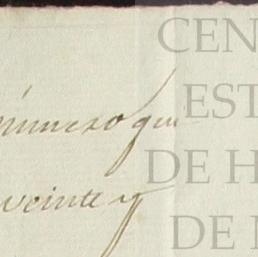 numero que
veinte y
CEN
EST
DE H
DE